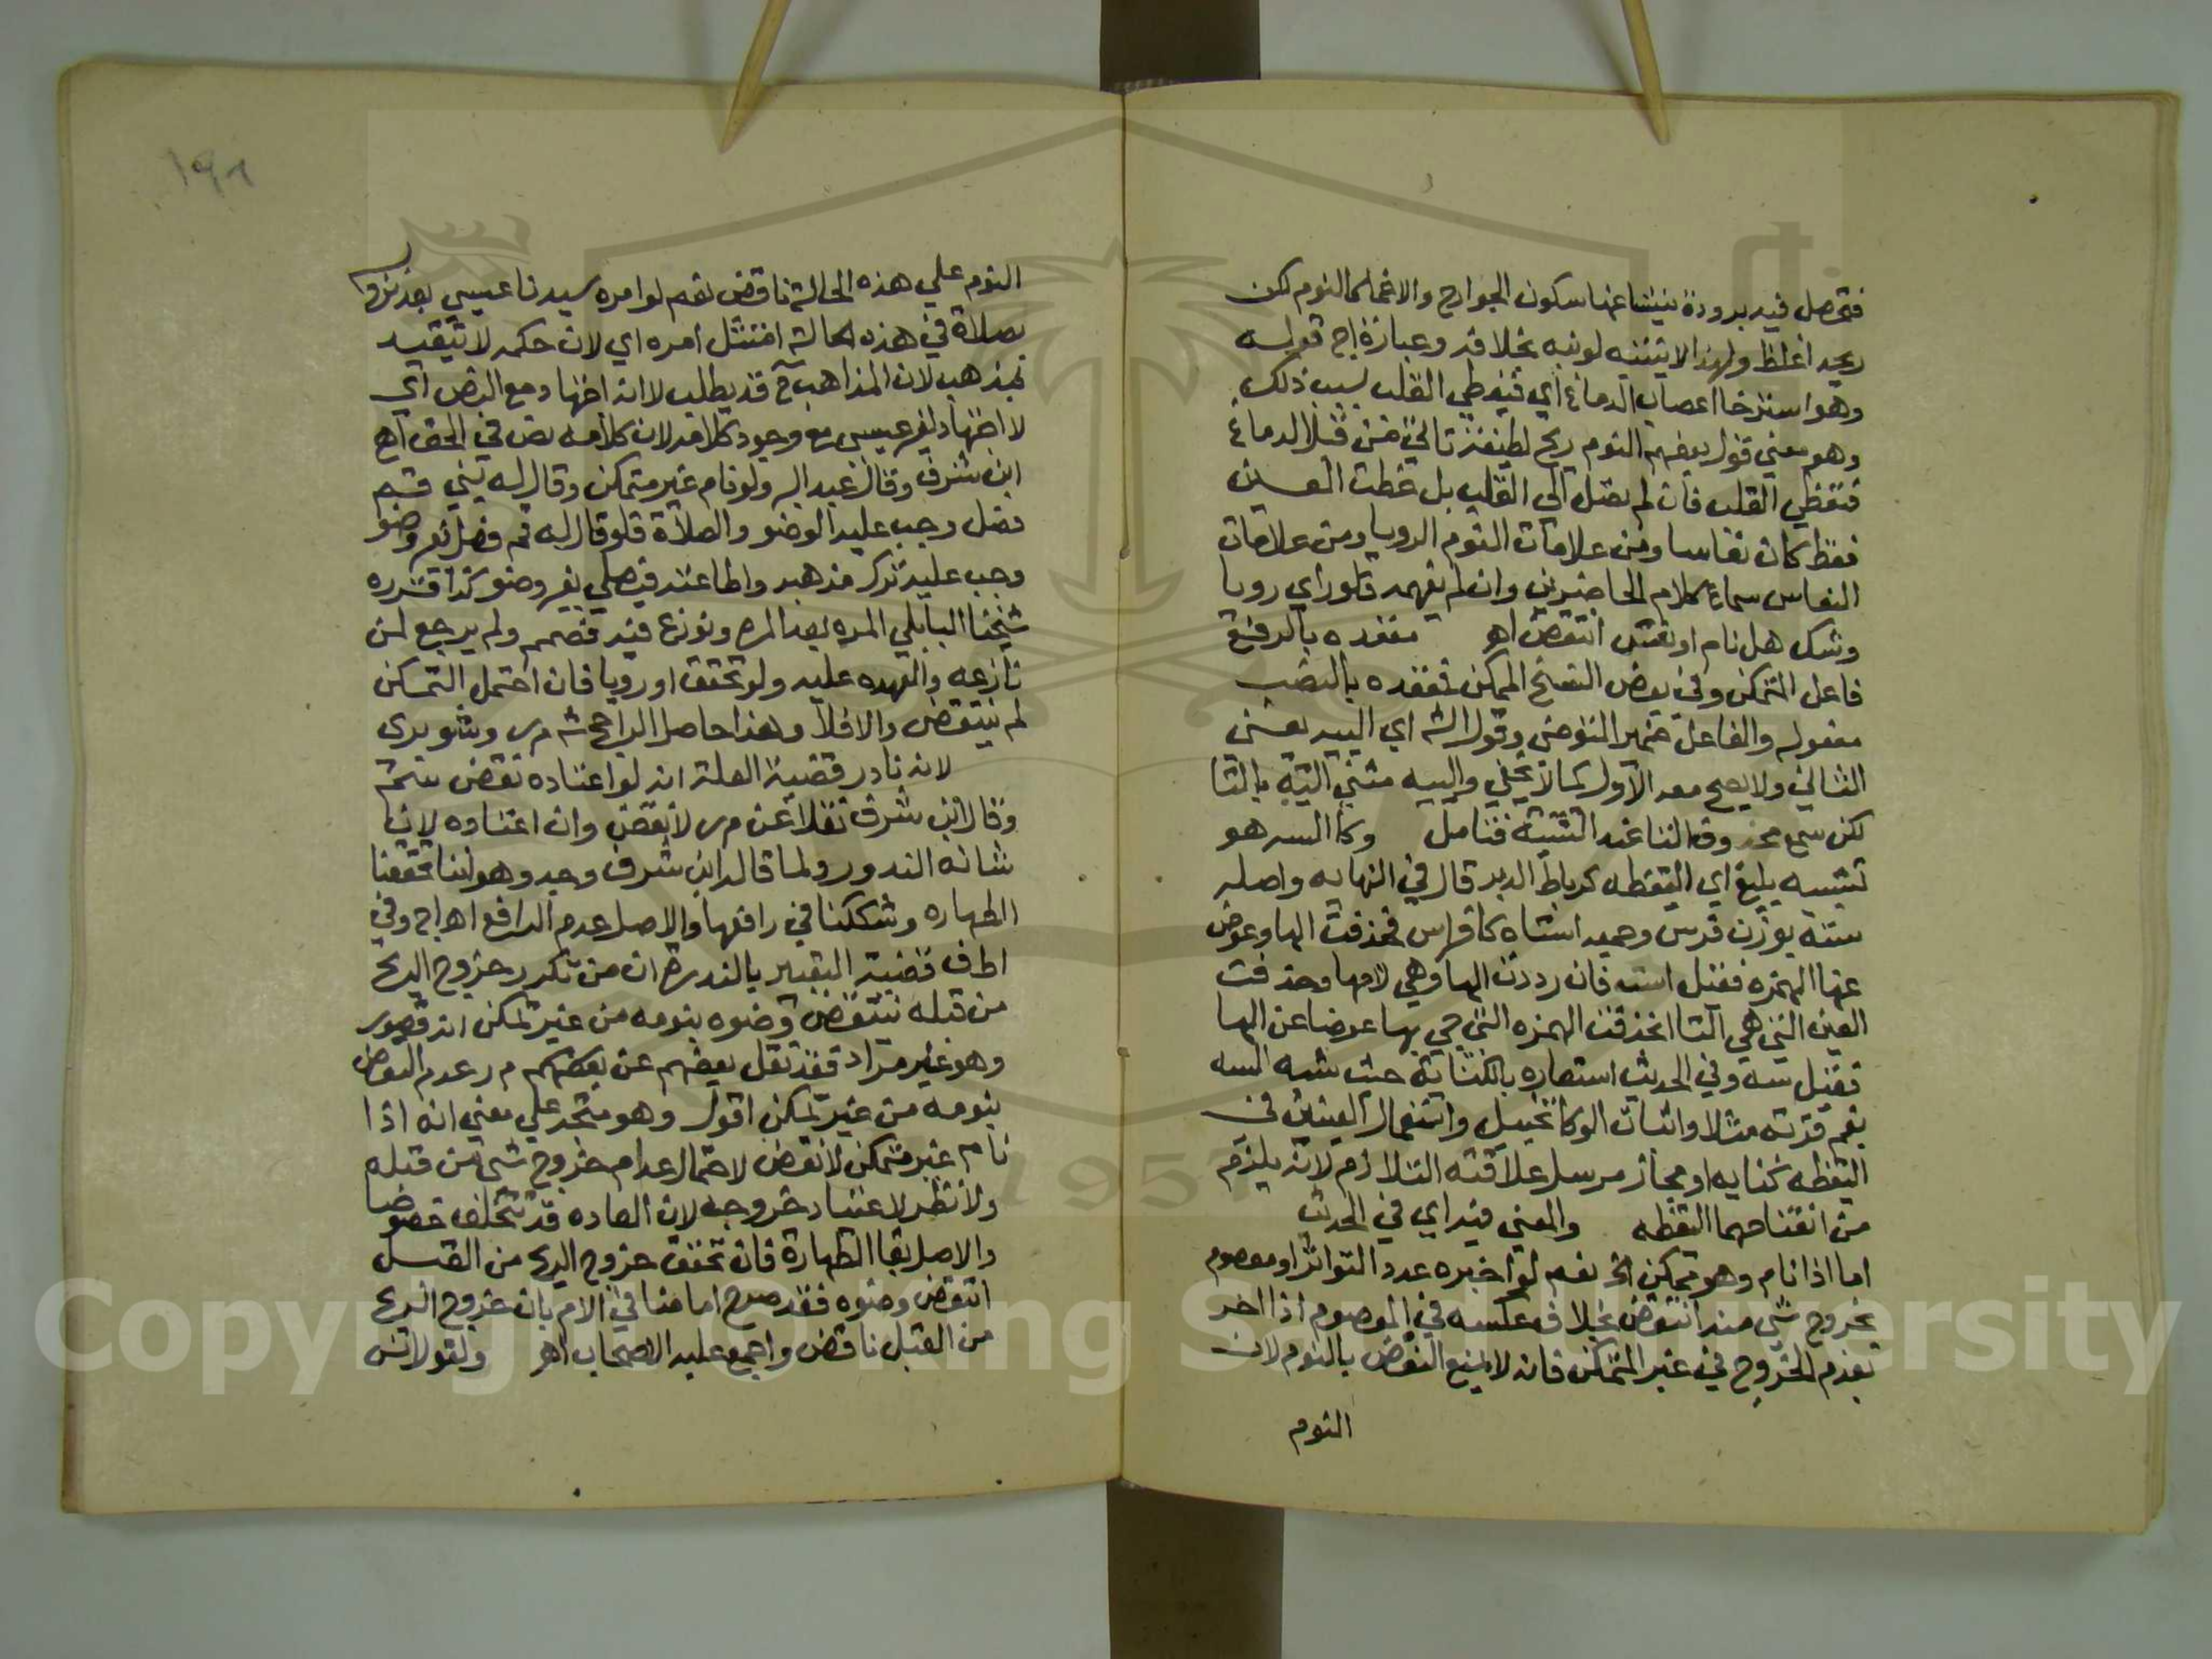 فتحصل فيه برودة ينشا عنها سكون الجوارح والاغما كالنوم لكن
ريحه اغلظ ولهذا لا يتنبه لو نبه بخلافه وعبارة اج قوله
وهو استرخا اعصاب الدماغ اي فيغطي القلب بسبب ذلك
وهو معني قول بعضهم النوم ريح لطيفة تاتي من قبل الدماغ
فتغطي القلب فان لم تصل الي القلب بل غطت العين
فقط كان نعاسا ومن علامات النوم الرويا ومن علامات
النعاس سماع كلام الحاضرين وان لم يفهمه فلو راي رويا
وشك هل نام او نعس انتقض اهو مقعده بالرفع
فاعل التمكن وفي بعض النسخ الممكن مقعده بالنصب
مفعوله والفاعل ضمير المتوضي وقول الشه اي الييه يعني
الثاني ولا يصح معه الاول كما لا يخفي والييه مثني الية بالتا
لكن سمع محذوف التا عند التثنية فتامل وكا السه هو
تشبيه بليغ اي اليقظه كرباط الدبر قال في النهايه واصله
سته بوزن فرس وجمعه استاه كافراس فحذفت الها وعوض
عنها الهمزه فقيل استه فان رددت الها وهي لامها وحذفت
العين التي هي التا انحذفت الهمزه التي جي بها عوضا عن الها
فقيل سه وفي الحديث استعاره بالكناية حيث شبه السه
بفم قربة مثلا واثبات الوكا تخييل واستعمال العينين في
اليقظه كنايه او مجاز مرسل علاقته التلازم لانه يلزم
من انفتاحهما اليقظه والمعني فيه اي في الحديث
اما اذا نام وهو ممكن الخ نعم لو اخبره عدد التواتر او معصوم
بخروج شي منه انتقض بخلاف عكسه في المعصوم اذا اخبر
بعدم الخروج في غير المتمكن فانه لا يمنع النقض بالنوم لان
النوم
١٩١
النوم علي هذه الحالة ناقض نعم لو امره سيدنا عيسي بعد نزوله
بصلاة في هذه الحالة امتثل امره اي لان حكمه لا يتقيد
بمذهب لان المذاهب ح قد يطلب لا انه اجتهاد ومع النص اي
لا اجتهاد لغير عيسي مع وجود كلامه لان كلامه نص في الحق اهج
ابن شرف وقال عبد البر ولو نام غير متمكن وقال له نبي قم
فصل وجب عليه الوضو والصلاة فلو قال له قم فصل بغير وضو
وجب عليه ترك مذهبه واطاعته فيصلي بغير وضو كذا قرره
شيخنا البابلي المره بعد المره ونوزع فيه فصمم ولم يرجع لمن
نازعه والعهده عليه ولو تحقق او رويا فان احتمل التمكن
لم ينتقض والا فلا وهذا حاصل الراجح شه م ر وشوبري
لانه نادر قضية العلة انه لو اعتاده نقض سم
وقال ابن شرف نقلا عن م ر لا نقض وان اعتاده لان
شانه الندور ولما قاله ابن شرف وجه وهو اننا تحققنا
الطهاره وشككنا في رافعها والاصل عدم الرافع اهو اج وفي
اطف قضية التعبير بالندره ان من تكرر خروج الريح
من قبله ينتقض وضوه بنومه من غير تمكن انه قصور
وهو غير مراد فقد نقل بعضهم عن بعضهم م ر عدم النقض
بنومه من غير تمكن اقول وهو متجه علي معني انه اذا
نام غير متمكن لا نقض لاحتمال عدم خروج شي من قبله
ولا نظر لاعتياد خروجه لان العاده قد تتخلف خصوصا
والاصل بقا الطهارة فان تحقق خروج الريح من القبل
انتقض وضوه فقد صرح امامنا في الام بان خروج الريح
من القبل ناقض واجمع عليه الاصحاب اهو ولقول انس
Copyright © King Saud University
1957